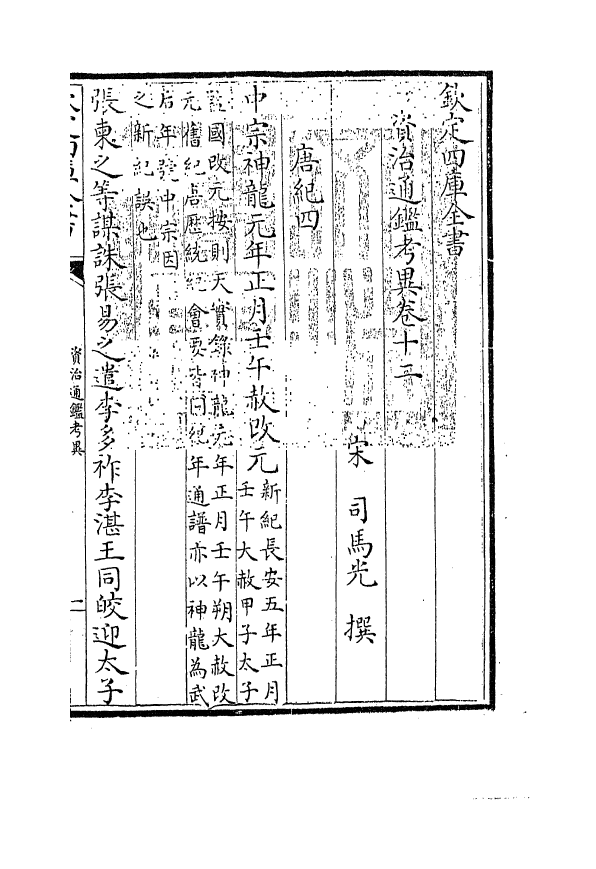 欽定四庫全書
資治通鑑考異卷十二
宋 司馬光 撰
唐紀四
中宗神龍元年正月壬午赦改元
新紀長安五年正月
壬午大赦甲子太子
監國改元按則天實錄神龍元年正月壬午朔大赦改
元舊紀唐歴統紀會要皆同紀年通譜亦以神龍為武
后年號中宗因
之新紀誤也
張柬之等謀誅張易之遣李多祚李湛王同皎迎太子
資治通鑑考異